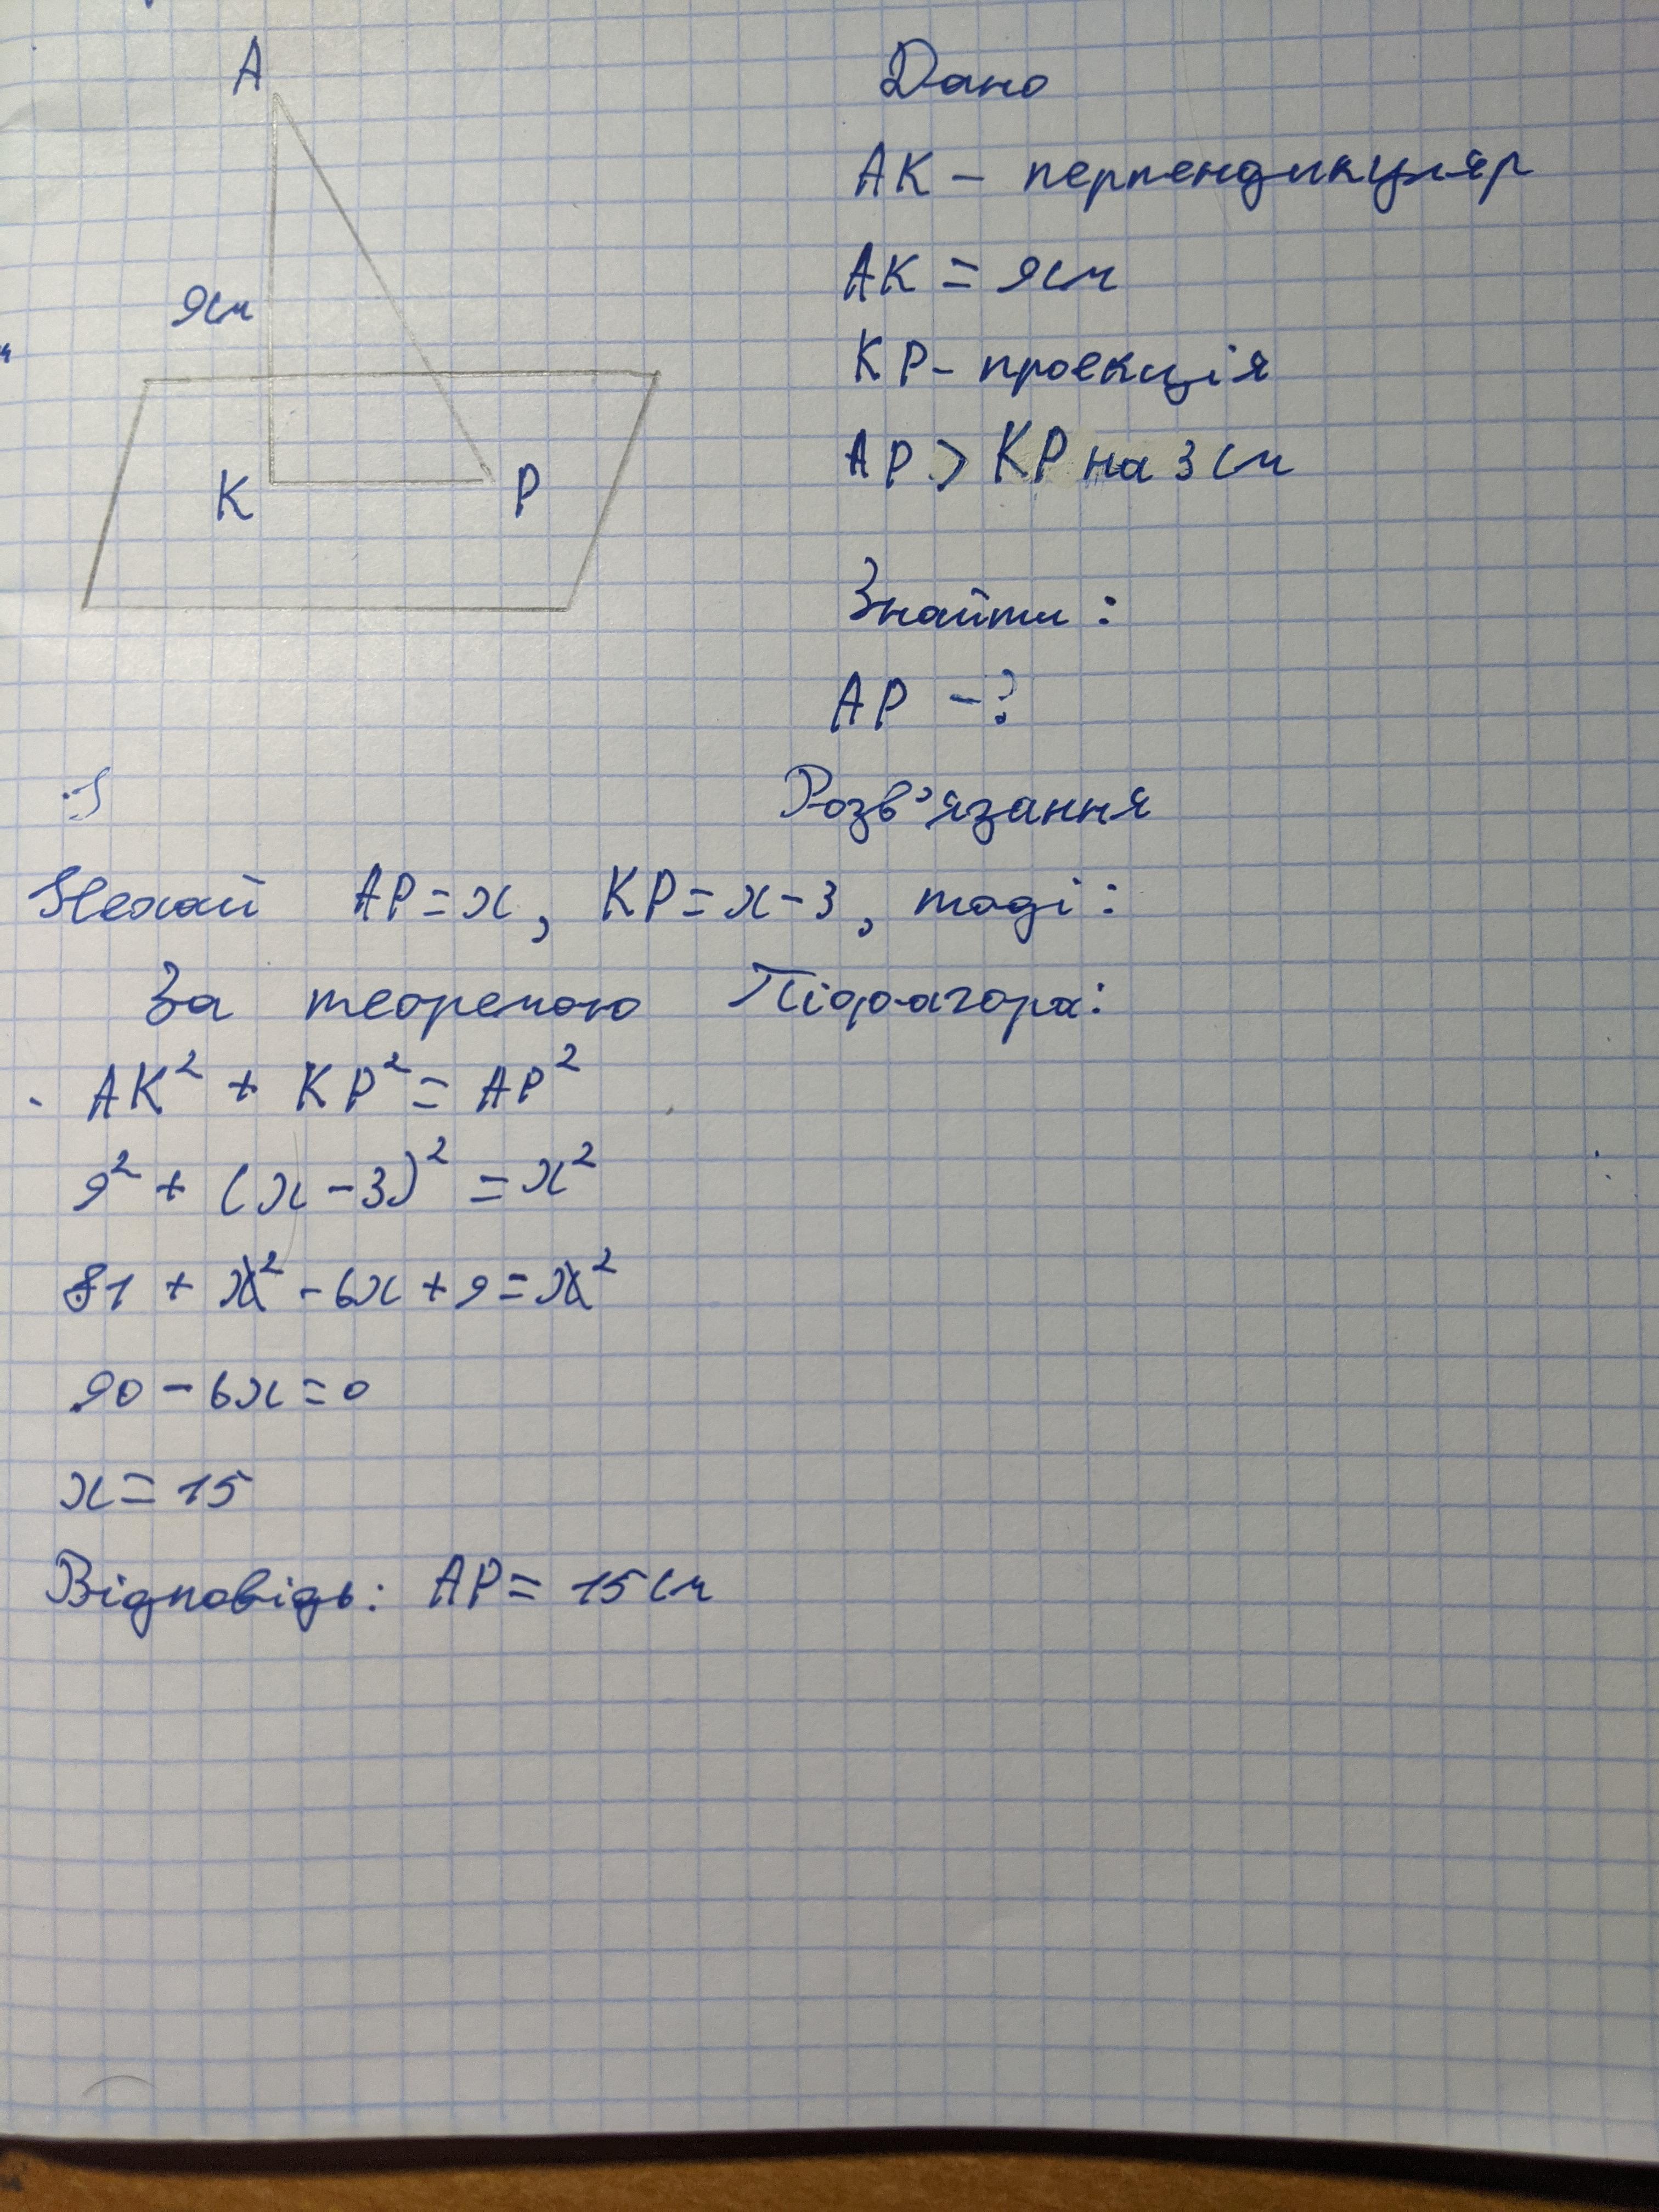 A
9см
K
P
Дано
AK – перпендикуляр
AK = 9см
KP – проекція
AP > KP на 3 см
Знайти :
AP – ?
Розв'язання
Нехай AP = x, KP = x - 3, тоді :
За теоремою Піфагора:
AK² + KP² = AP²
9² + (x - 3)² = x²
81 + x² - 6x + 9 = x²
90 - 6x = 0
x = 15
Відповідь: AP = 15 см